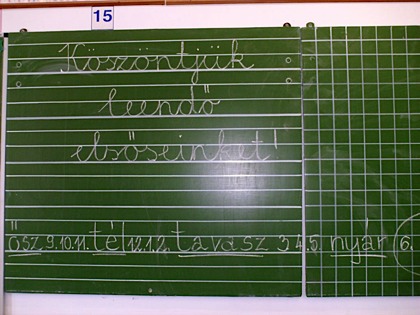 15
Köszöntjük
leendő
elsőseinket!
ősz 9.10.11. tél 12.1.2. tavasz 3.4.5. nyár (6.